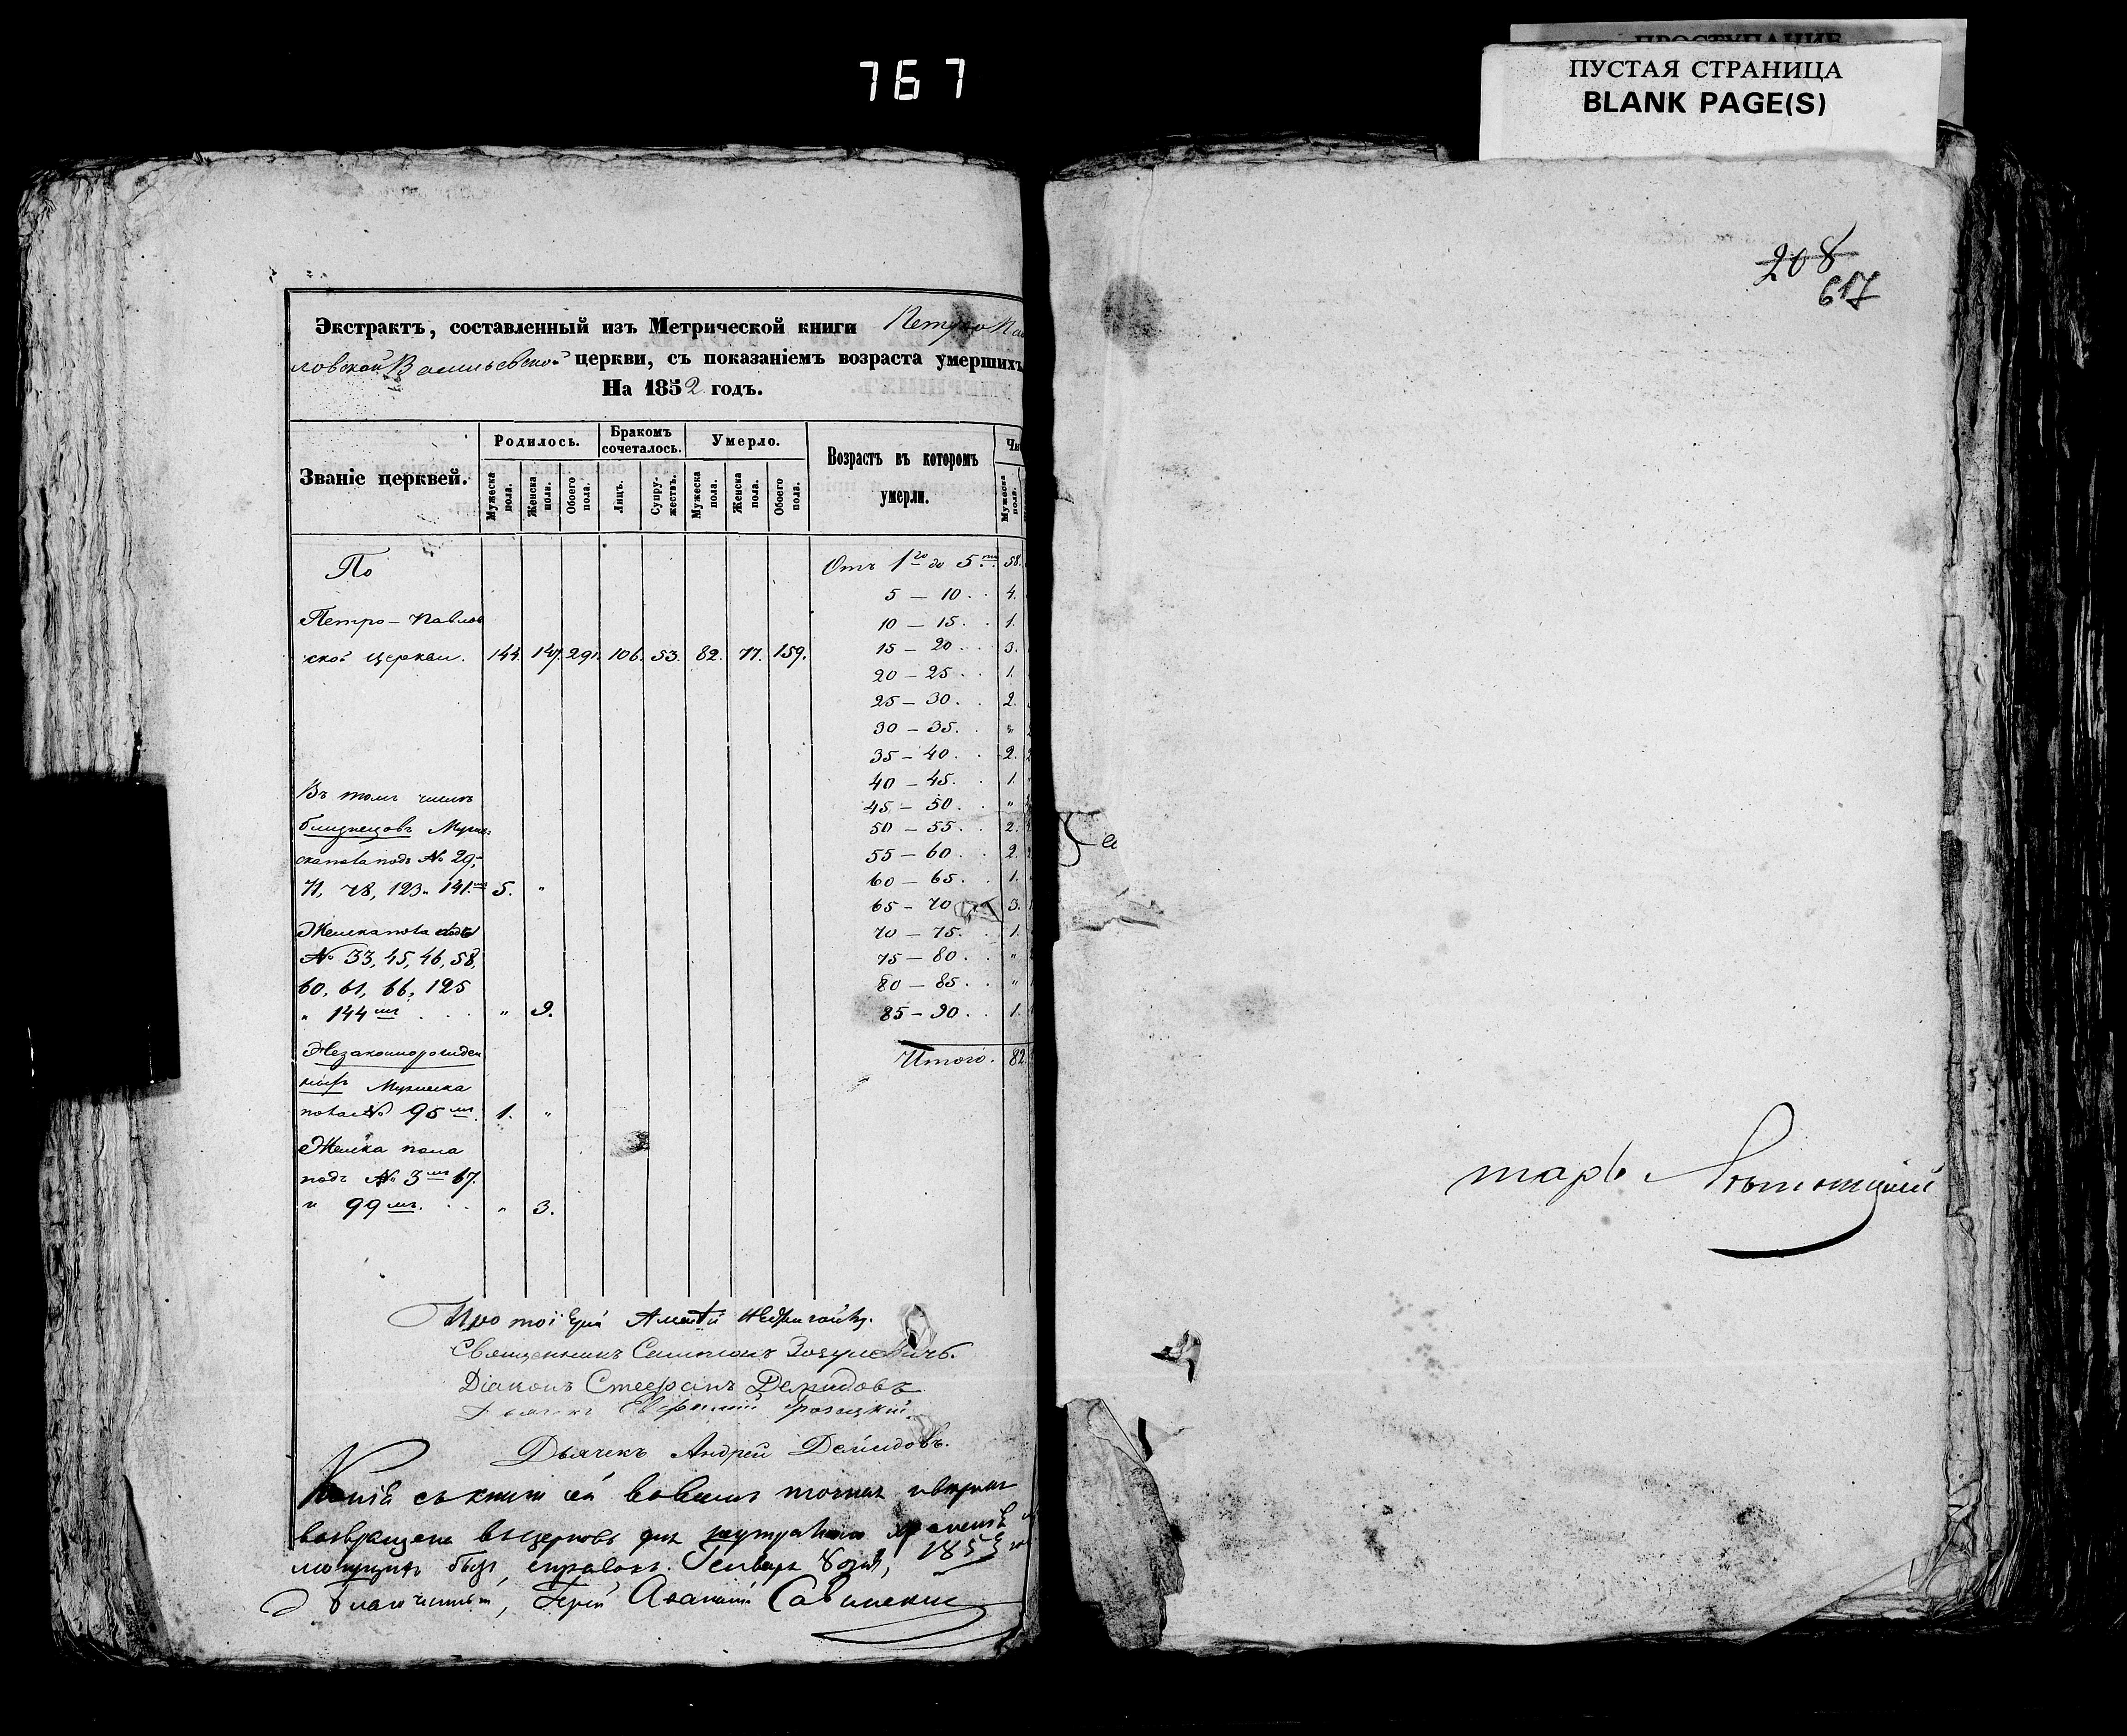 767
ПУСТАЯ СТРАНИЦА
BLANK PAGE(S)
208
617
Экстрактъ, составленный изъ Метрической книги Петро Пав
ловской Васильевской церкви, съ показаніемъ возраста умершихъ
На 1852 годъ.
Званіе церквей. Родилось. Бракомъ сочеталось. Умерло. Возрастъ въ которомъ умерли. Чи
Мужеска пола. Женска пола. Обоего пола. Лицъ. Супружествъ. Мужеска пола. Женска пола. Обоего пола. Мужеска пола.
По
Петро-Павлов
ской церкви. 144. 147. 291. 106. 53. 82. 77. 159.
Въ томъ числѣ
близнецовъ Муже-
ска пола подъ № 29,
71, 78, 123 141. 5. "
Женска пола подъ
№ 33, 45, 46, 58,
60, 61, 66, 125
" 144мъ . . . " 9.
Незаконнорожден
ныхъ Мужеска
пола № 95мъ. 1. "
Женска пола
подъ № 3мъ 67.
и 99мъ. . . " 3.
Отъ 1го до 5ти 58.
5 — 10 . . 4.
10 — 15 . . 1.
15 — 20 . . 3.
20 — 25 . . 1.
25 — 30 . . 2.
30 — 35 . . "
35 — 40 . . 2.
40 — 45 . . 1.
45 — 50 . . "
50 — 55 . . 2.
55 — 60 . . 2.
60 — 65 . . 1.
65 — 70 3.
70 — 75 . . 1.
75 — 80 . . "
80 — 85 . . "
85 — 90 . . 1.
Итого. 82.
Протоіерей
Священникъ Симеонъ Зозулевичъ.
Діаконъ Стефанъ Демидовъ
Дьячекъ
Дьячекъ Андрей Демидовъ.
Копія съ книги сей вовсемъ точная
возвращена въ церковь для храненія
могущихъ быть справокъ. Генваря 8 дня, 1853
Благочинный, Іерей Аѳанасій Савинскій
тарь